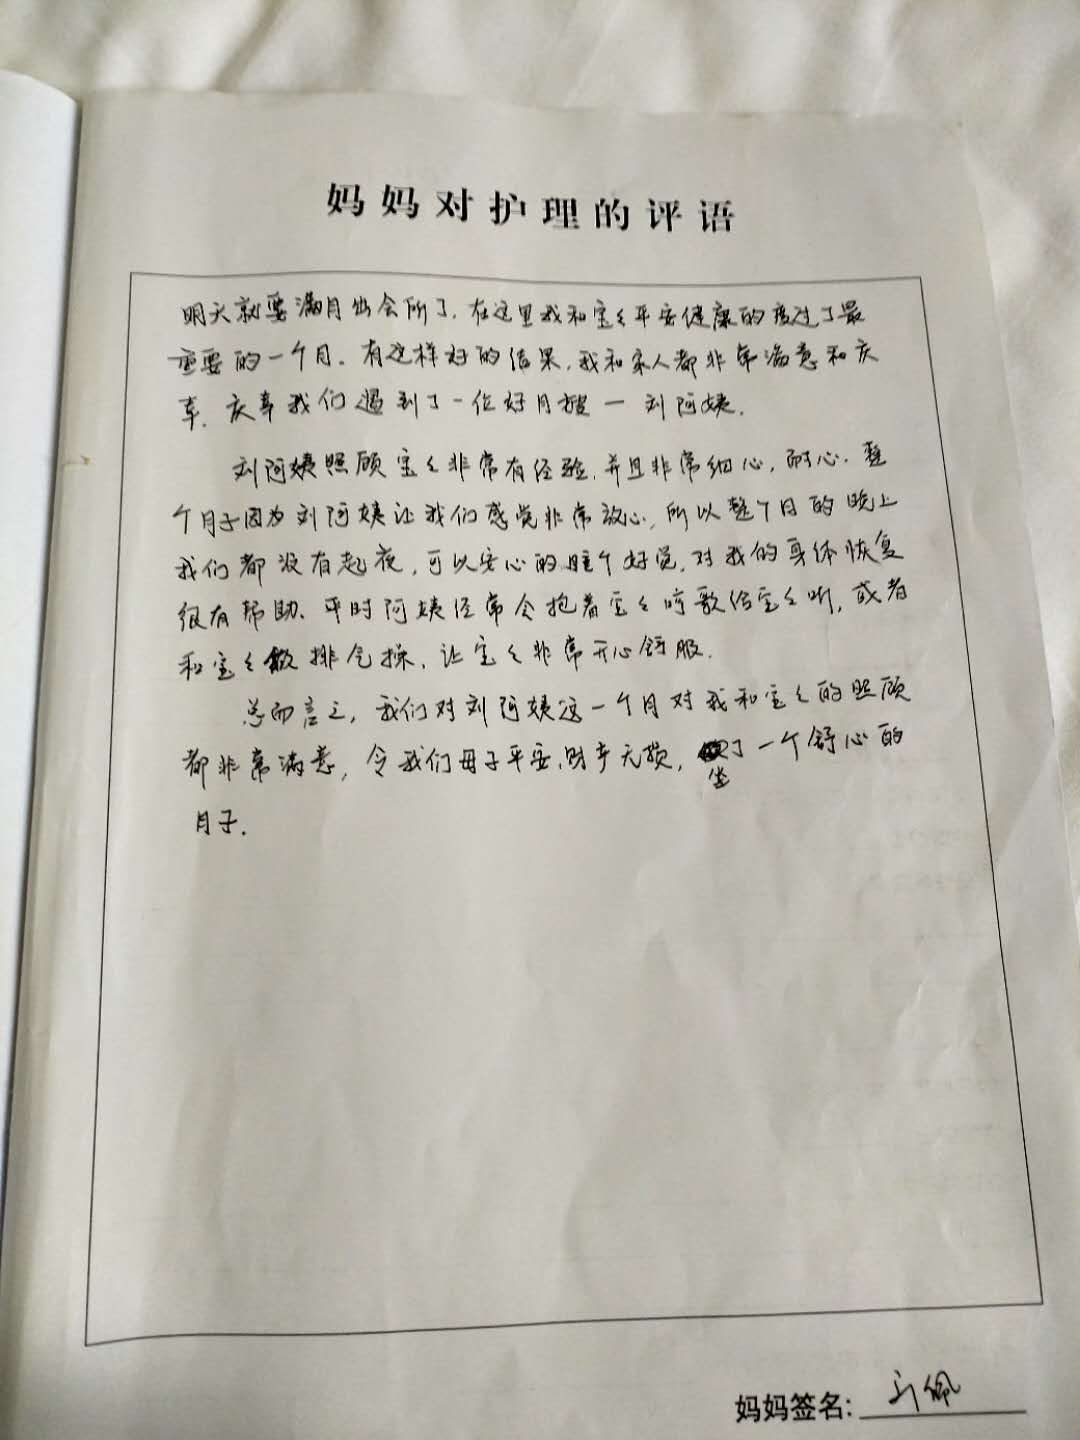 妈妈对护理的评语
明天就要满月出会所了.在这里我和宝宝平安健康的度过了最
重要的一个月.有这样好的结果,我和家人都非常满意和庆
幸.庆幸我们遇到了一位好月嫂一刘阿姨.
刘阿姨照顾宝宝非常有经验,并且非常细心,耐心.整
个月子因为刘阿姨让我们感觉非常放心,所以整个月的晚上
我们都没有起夜,可以安心的睡个好觉,对我的身体恢复
很有帮助.平时阿姨经常会抱着宝宝哼歌给宝宝听,或者
和宝宝做排气操,让宝宝非常开心舒服.
总而言之,我们对刘阿姨这一个月对我和宝宝的照顾
都非常满意,令我们母子平安,财产无损,坐了一个舒心的
月子.
妈妈签名: